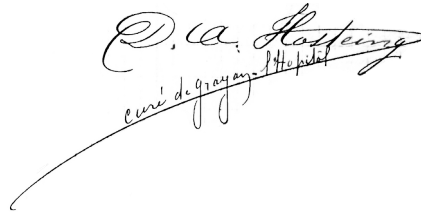 P. A. Hosteing
curé de grayan-l'Hopital